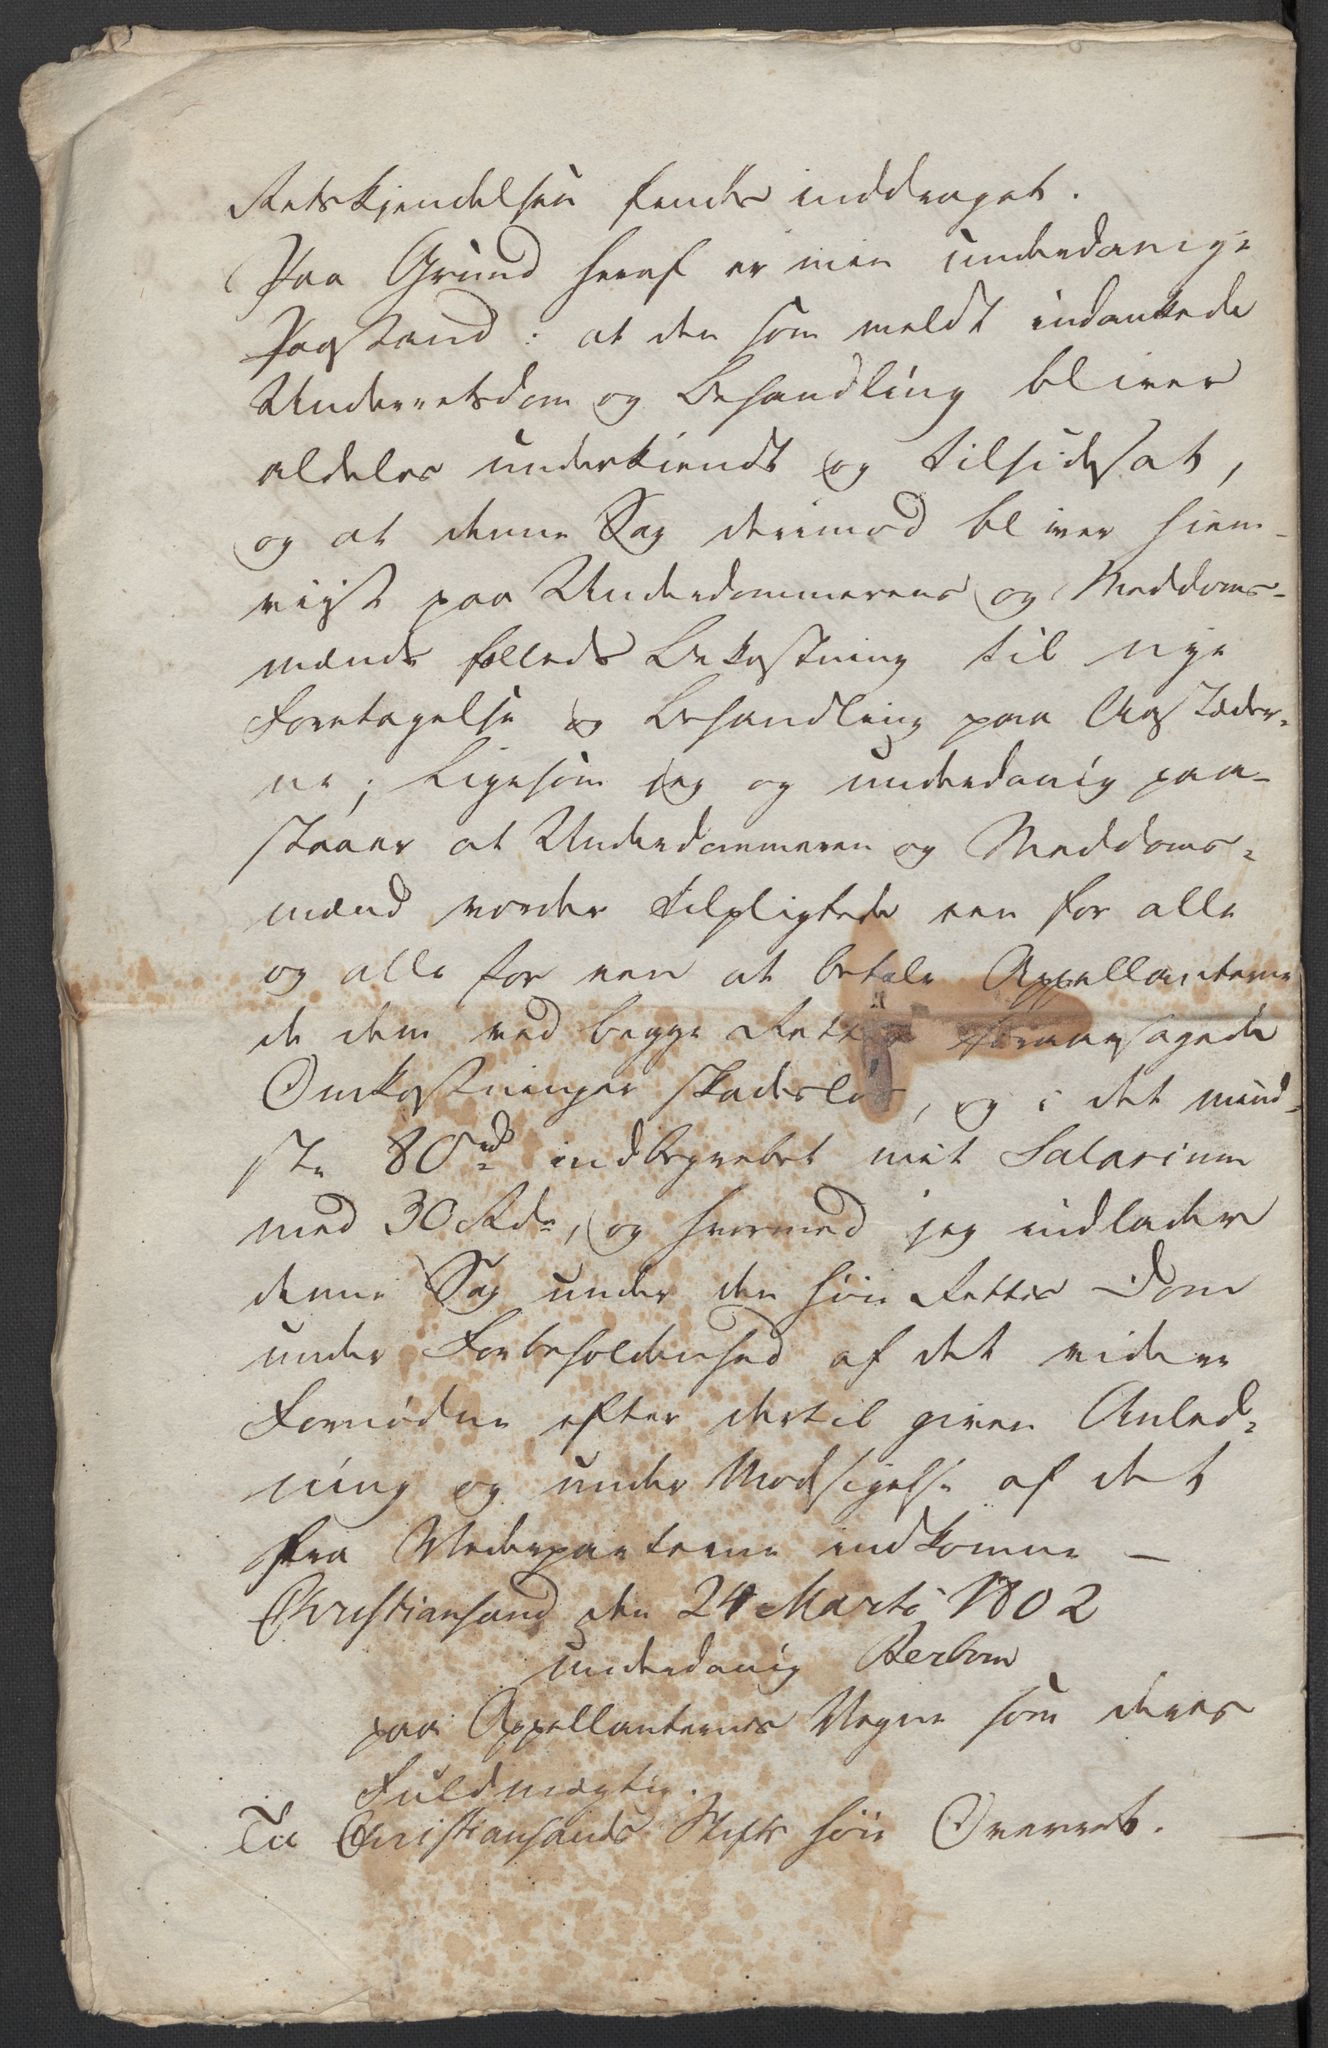 Retskjendelsen findes inddraget.
Paa Grund heraf er min underdanige
Paastand: at den som meldt indankede
Underretsdom og Behandling bliver
aldeles underkiendt og tilsidesat,
og at denne Sag derimod bliver hiem-
viist paa Underdommerens og Meddoms-
mænds fælleds Bekostning til nye
Foretagelse og Behandling paa Aastæder-
ne; Ligesom jeg og underdanig paa-
staaer at Underdommeren og Meddoms-
mænd vorder tilpligtede een for alle
og alle for een at betale Appellanterne
de dem ved begge Retter foraarsagede
Omkostninger skadesløs, og i det mind-
ste 80 rd indbegrebet mit Salarium
med 30 Rd, og hvormed jeg indlader
denne Sag under den høie Rettes Dom
under Forbeholdenhed af det videre
Fornødne efter dertil given Anled-
ning og under Modsigelse af det
fra Vederparterne indkomne —
Christiansand den 24 Marti 1802
underdanig Aerbom
paa Appellanternes Vegne som deres
Fuldmægtig.
Til Christiansands Stifts høie Overret.